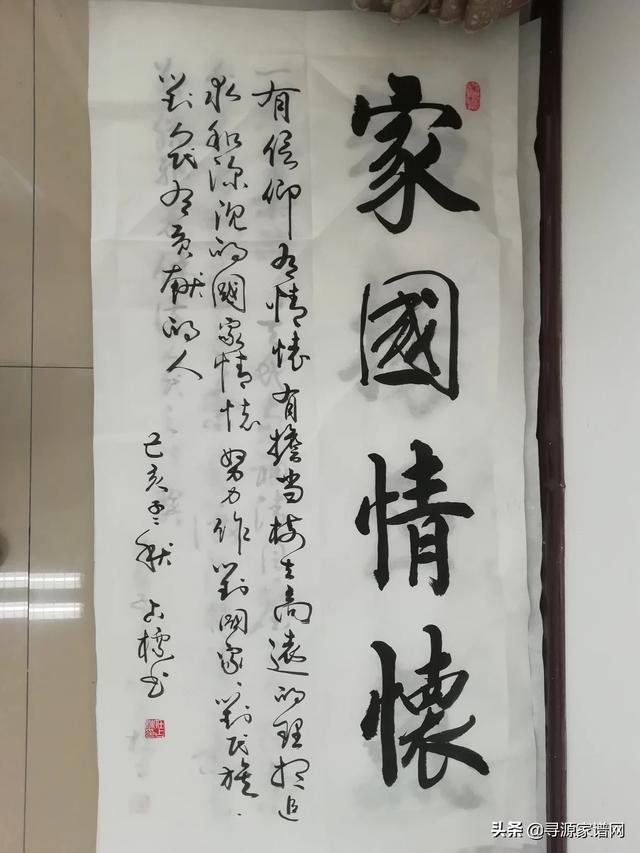 家國情懷
有信仰有情懷有擔当树立高遠的理想追
求和深沉的國家情懷努力作對国家、對民族、
對人民有贡献的人
己亥秋 书
头条 @寻源家谱网